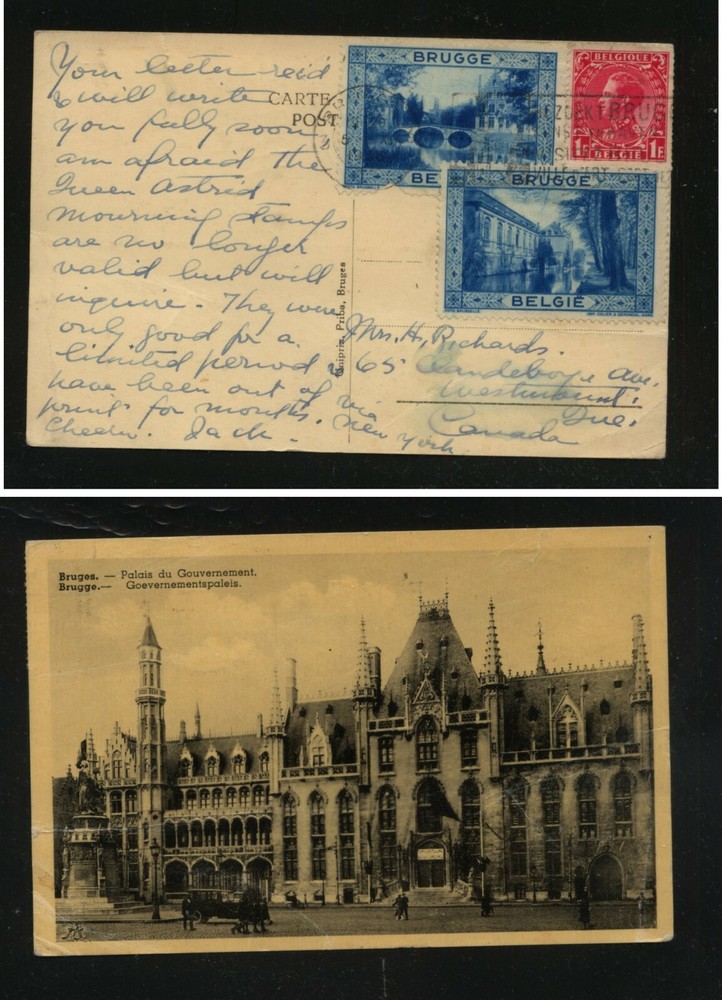 Your letter rec'd
& will write
you fully soon
am afraid the
Queen Astrid
mourning stamps
are no longer
valid but will
inquire - They were
only good for a
limited period &
have been out of
print for months.
Cheerio. Jack -
CARTE
POST
BRUGGE
BE
BELGIQUE
1F BELGIË 1F
BRUGGE
BELGIË
Priba, Bruges
Mrs. H. Richards.
65 Ave.
Westmount.
Que.
Canada
via
New York
Bruges. — Palais du Gouvernement.
Brugge.— Goevernementspaleis.